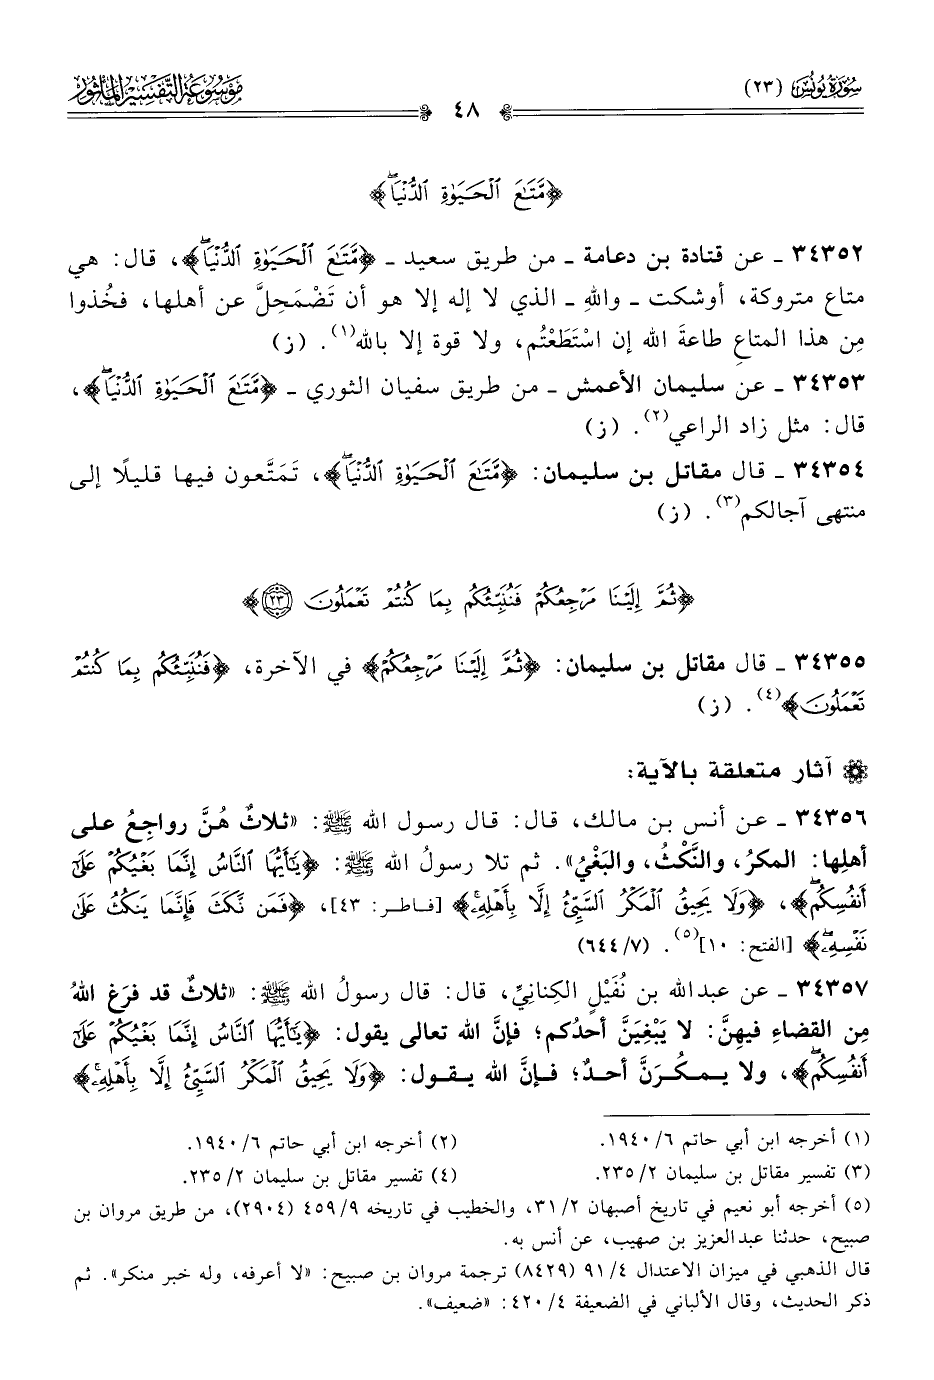 سُورَةُ يُونُسَ (٢٣)
٤٨
مَوْسُوعَةُ التَّفْسِيرِ المَأْثُورِ
﴿مَّتَٰعَ ٱلْحَيَوٰةِ ٱلدُّنْيَاۖ﴾
٣٤٣٥٢ ـ عن قتادة بن دعامة ـ من طريق سعيد ـ ﴿مَّتَٰعَ ٱلْحَيَوٰةِ ٱلدُّنْيَاۖ﴾، قال: هي
متاع متروكة، أوشكت ـ واللهِ ـ الذي لا إله إلا هو أن تَضْمَحِلَّ عن أهلها، فخُذوا
مِن هذا المتاعِ طاعةَ الله إن اسْتَطَعْتُم، ولا قوة إلا بالله(١). (ز)
٣٤٣٥٣ ـ عن سليمان الأعمش ـ من طريق سفيان الثوري ـ ﴿مَّتَٰعَ ٱلْحَيَوٰةِ ٱلدُّنْيَاۖ﴾،
قال: مثل زاد الراعي(٢). (ز)
٣٤٣٥٤ ـ قال مقاتل بن سليمان: ﴿مَّتَٰعَ ٱلْحَيَوٰةِ ٱلدُّنْيَاۖ﴾، تَمَتَّعون فيها قليلًا إلى
منتهى آجالكم(٣). (ز)
﴿ثُمَّ إِلَيْنَا مَرْجِعُكُمْ فَنُنَبِّئُكُم بِمَا كُنتُمْ تَعْمَلُونَ ٢٣﴾
٣٤٣٥٥ ـ قال مقاتل بن سليمان: ﴿ثُمَّ إِلَيْنَا مَرْجِعُكُمْ﴾ في الآخرة، ﴿فَنُنَبِّئُكُم بِمَا كُنتُمْ
تَعْمَلُونَ﴾(٤). (ز)
آثار متعلقة بالآية:
٣٤٣٥٦ ـ عن أنس بن مالك، قال: قال رسول الله ﷺ: «ثلاثٌ هُنَّ رواجِعُ على
أهلِها: المكرُ، والنَّكْثُ، والبَغْيُ». ثم تلا رسولُ الله ﷺ: ﴿يَٰٓأَيُّهَا ٱلنَّاسُ إِنَّمَا بَغْيُكُمْ عَلَىٰٓ
أَنفُسِكُمۖ﴾، ﴿وَلَا يَحِيقُ ٱلْمَكْرُ ٱلسَّيِّئُ إِلَّا بِأَهْلِهِۦۚ﴾ [فاطر: ٤٣]، ﴿فَمَن نَّكَثَ فَإِنَّمَا يَنكُثُ عَلَىٰ
نَفْسِهِۦۖ﴾ [الفتح: ١٠](٥). (٧/ ٦٤٤)
٣٤٣٥٧ ـ عن عبدالله بن نُفَيْلٍ الكِنانيِّ، قال: قال رسولُ الله ﷺ: «ثلاثٌ قد فرَغ اللهُ
مِن القضاءِ فيهِنَّ: لا يَبْغِيَنَّ أحدُكم؛ فإنَّ الله تعالى يقول: ﴿يَٰٓأَيُّهَا ٱلنَّاسُ إِنَّمَا بَغْيُكُمْ عَلَىٰٓ
أَنفُسِكُمۖ﴾، ولا يمكُرَنَّ أحدٌ؛ فإنَّ الله يقول: ﴿وَلَا يَحِيقُ ٱلْمَكْرُ ٱلسَّيِّئُ إِلَّا بِأَهْلِهِۦۚ﴾
(١) أخرجه ابن أبي حاتم ٦/ ١٩٤٠. (٢) أخرجه ابن أبي حاتم ٦/ ١٩٤٠.
(٣) تفسير مقاتل بن سليمان ٢/ ٢٣٥. (٤) تفسير مقاتل بن سليمان ٢/ ٢٣٥.
(٥) أخرجه أبو نعيم في تاريخ أصبهان ٢/ ٣١، والخطيب في تاريخه ٩/ ٤٥٩ (٢٩٠٤)، من طريق مروان بن
صبيح، حدثنا عبدالعزيز بن صهيب، عن أنس به.
قال الذهبي في ميزان الاعتدال ٤/ ٩١ (٨٤٢٩) ترجمة مروان بن صبيح: «لا أعرفه، وله خبر منكر». ثم
ذكر الحديث، وقال الألباني في الضعيفة ٤/ ٤٢٠: «ضعيف».